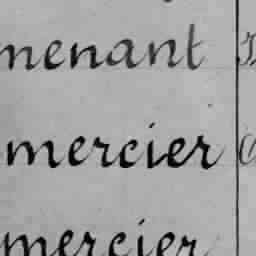 menant
mercier
mercier